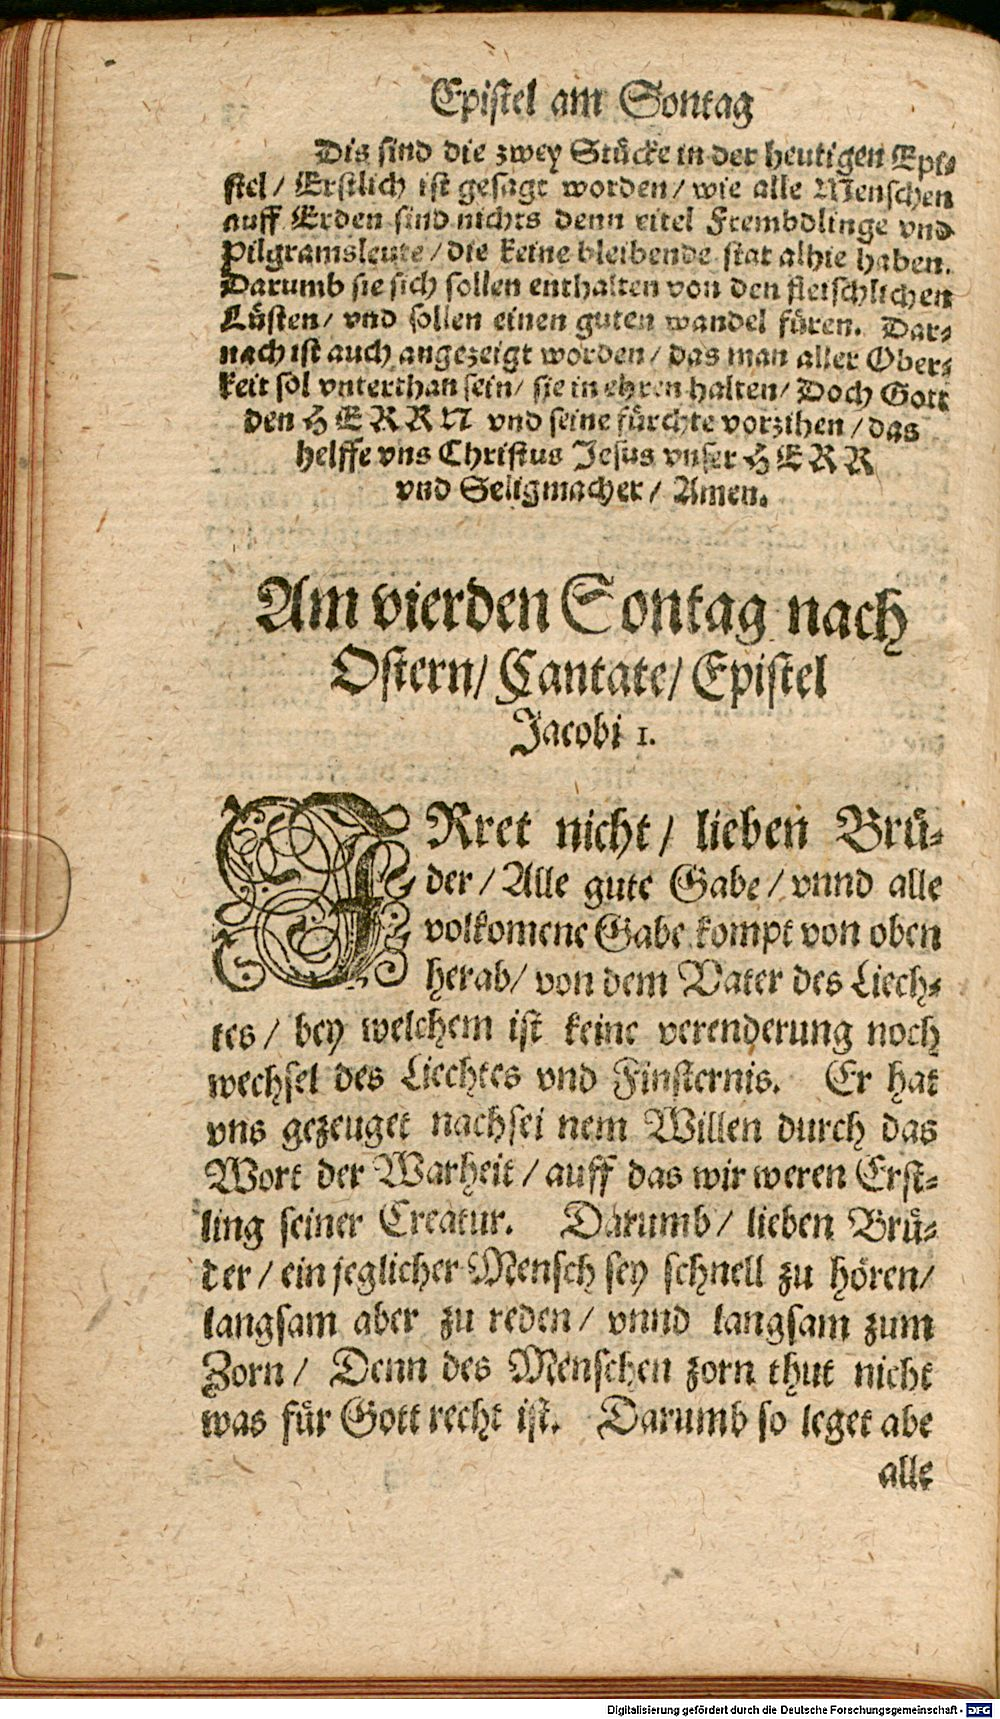 Epistel am Sontag
Dis sind die zwey Stücke in der heutigen Epi-
stel / Erstlich ist gesagt worden / wie alle Menschen
auff Erden sind nichts denn eitel Frembdlinge vnd
Pilgramsleute / die keine bleibende stat alhie haben.
Darumb sie sich sollen enthalten von den fleischlichen
Lüsten / vnd sollen einen guten wandel füren. Dar-
nach ist auch angezeigt worden / das man aller Ober-
keit sol vnterthan sein / sie in ehren halten / Doch Gott
den HERRN vnd seine fürchte vorzihen / das
helffe vns Christus Jesus vnser HERR
vnd Seligmacher / Amen.
Am vierden Sontag nach
Ostern / Cantate / Epistel
Jacobi 1.
IRret nicht / lieben Brü-
der / Alle gute Gabe / vnnd alle
volkomene Gabe kompt von oben
herab / von dem Vater des Liech-
tes / bey welchem ist keine verenderung noch
wechsel des Liechtes vnd Finsternis. Er hat
vns gezeuget nachsei nem Willen durch das
Wort der Warheit / auff das wir weren Erst-
ling seiner Creatur. Darumb / lieben Brü-
der / ein jeglicher Mensch sey schnell zu hören /
langsam aber zu reden / vnnd langsam zum
Zorn / Denn des Menschen zorn thut nicht
was für Gott recht ist. Darumb so leget abe
alle
Digitalisierung gefördert durch die Deutsche Forschungsgemeinschaft - DFG